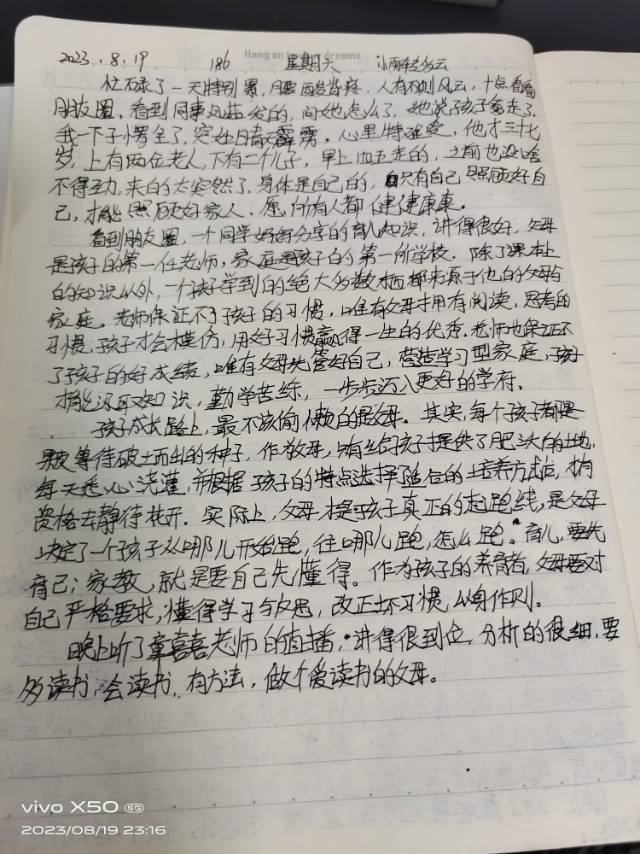 2023.8.19 186 星期六 小雨转多云
Hang on to your dreams
忙碌了一天特别累,腰酸背疼,人有不测风云,十点看看
朋友圈,看到同事凤茹发的,问她怎么了,她说孩子爸走了,
我一下子愣住了,突如晴天霹雳。心里特难受,他才三十七
岁,上有两位老人,下有二个儿子,早上四五走的,之前也没啥
不得劲,来的太突然了,身体是自己的,只有自己照顾好自
己,才能照顾好家人。愿所有人都健健康康。
看到朋友圈,一个同学妈妈分享的育儿知识,讲得很好,父母
是孩子的第一任老师,家庭是孩子的第一所学校。除了课本上
的知识以外,一个孩子学到的绝大多数东西都来源于他的父母与
家庭。老师保证不了孩子的习惯,唯有父母拥有阅读,思考的
习惯,孩子才会模仿,用好习惯赢得一生的优秀。老师也保证不
了孩子的好成绩,唯有父母先管好自己,营造学习型家庭,孩子
才能汲取知识,勤学苦练,一步步迈入更好的学府。
孩子成长路上,最不该偷懒的是父母。其实,每个孩子都是
颗等待破土而出的种子,作为父母,只有给孩子提供了肥沃的土地,
每天悉心浇灌,并根据孩子的特点选择适合的培养方式后,才有
资格去静待花开。实际上,父母才是孩子真正的起跑线,是父母
决定了一个孩子从哪儿开始跑,往哪儿跑,怎么跑。育儿,要先
育己;家教,就是要自己先懂得。作为孩子的养育者,父母要对
自己严格要求,懂得学习与反思,改正坏习惯,以身作则。
晚上听了童喜喜老师的直播,讲得很到位,分析的很细,要
多读书,会读书,有方法,做个爱读书的父母。
vivo X50 5G
2023/08/19 23:16